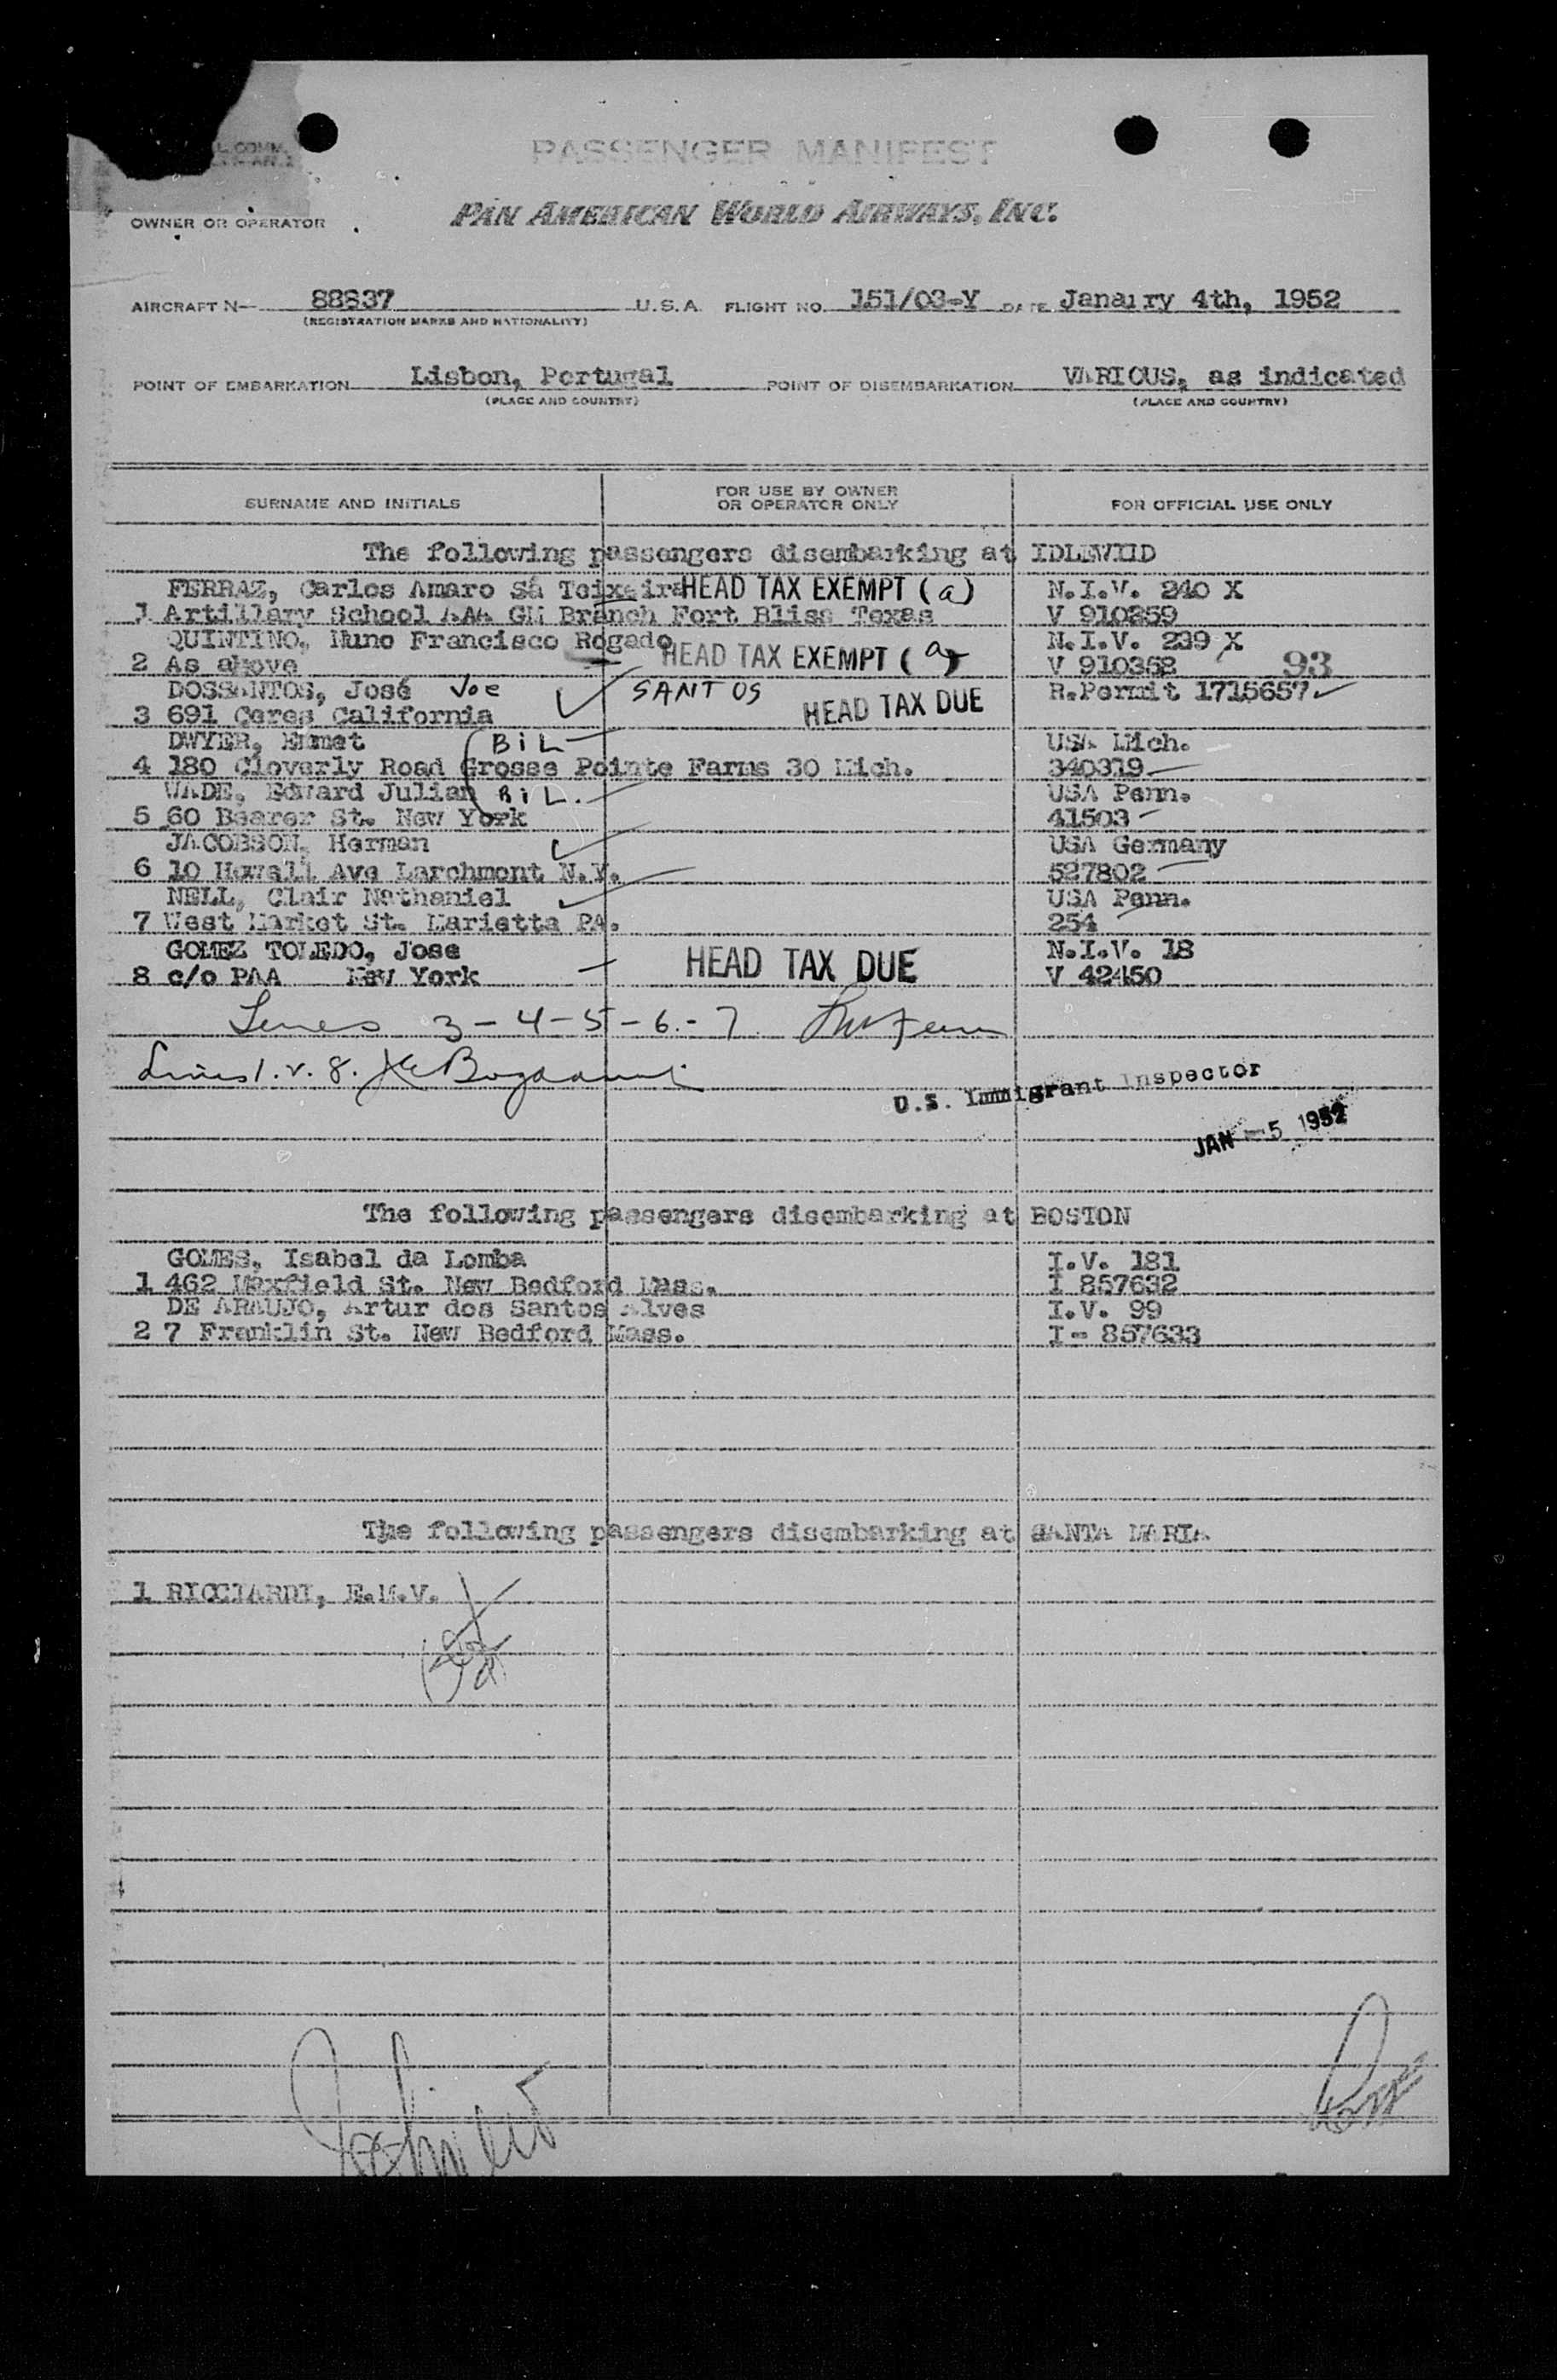 L COMM.
PASSENGER MANIFEST
OWNER OR OPERATOR
PAN AMERICAN WORLD AIRWAYS, INC.
AIRCRAFT N— 88837 U.S.A. FLIGHT NO. 151/03-Y DATE Janary 4th, 1952
(REGISTRATION MARKS AND NATIONALITY)
POINT OF EMBARKATION Lisbon, Portugal POINT OF DISEMBARKATION VARIOUS, as indicated
(PLACE AND COUNTRY) (PLACE AND COUNTRY)
SURNAME AND INITIALS FOR USE BY OWNER OR OPERATOR ONLY FOR OFFICIAL USE ONLY
The following passengers disembarking at IDLEWILD
FERRAZ, Carlos Amaro Sá Teixeira HEAD TAX EXEMPT (a) N.I.V. 240 X
1 Artillary School AAA GM Branch Fort Bliss Texas V 910359
QUINTINO, Nuno Francisco Rogado HEAD TAX EXEMPT (a) N.I.V. 239 X
2 As above V 910358 93
DOSSANTOS, José Joe SANTOS HEAD TAX DUE R.Permit 1715657
3 691 Ceres California
DWYER, Emmet BiL USA Mich.
4 180 Cloverly Road Grosse Pointe Farms 30 Mich. 340319
WADE, Edward Julian BiL. USA Penn.
5 60 Beaver St. New York 41503
JACOBSON, Herman USA Germany
6 10 Howall Ave Larchmont N.Y. 527802
NELL, Clair Nathaniel USA Penn.
7 West Market St. Marietta PA. 254
GOMEZ TOLEDO, Jose HEAD TAX DUE N.I.V. 18
8 c/o PAA New York V 42450
Lines 3-4-5-6-7
Lines 1. 2. 8.
U.S. Immigrant Inspector
JAN -5 1952
The following passengers disembarking at BOSTON
GOMES, Isabel da Lomba I.V. 181
1 462 Maxfield St. New Bedford Mass. I 857632
DE ARAUJO, Artur dos Santos Alves I.V. 99
2 7 Franklin St. New Bedford Mass. I- 857633
The following passengers disembarking at SANTA MARIA
1 RICCIARDI, E.M.V.